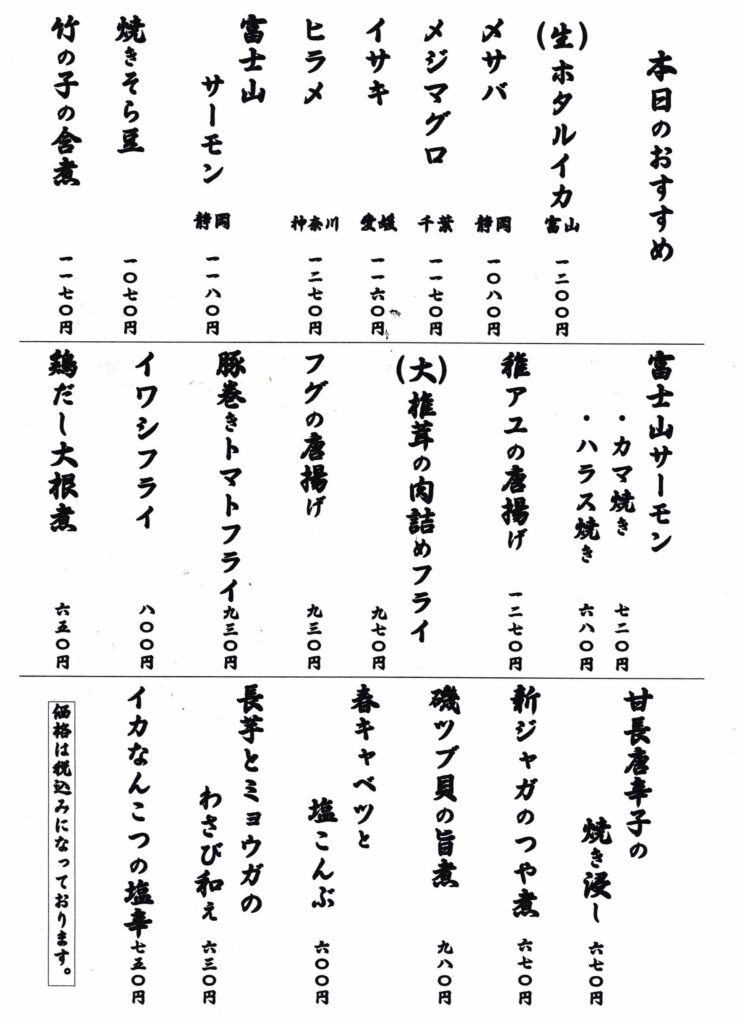 本日のおすすめ
(生)ホタルイカ 富山 一二〇〇円
〆サバ 静岡 一〇八〇円
メジマグロ 千葉 一一七〇円
イサキ 愛媛 一一六〇円
ヒラメ 神奈川 一二七〇円
富士山
サーモン 静岡 一一八〇円
焼きそら豆 一〇七〇円
竹の子の含煮 一一七〇円
富士山サーモン
・カマ焼き 七二〇円
・ハラス焼き 六八〇円
稚アユの唐揚げ 一二七〇円
(大)椎茸の肉詰めフライ 九七〇円
フグの唐揚げ 九三〇円
豚巻きトマトフライ 九三〇円
イワシフライ 八〇〇円
鶏だし大根煮 六五〇円
甘長唐辛子の
焼き浸し 六七〇円
新ジャガのつや煮 六七〇円
磯ツブ貝の旨煮 九八〇円
春キャベツと
塩こんぶ 六〇〇円
長芋とミョウガの
わさび和え 六三〇円
イカなんこつの塩辛 七五〇円
価格は税込みになっております。